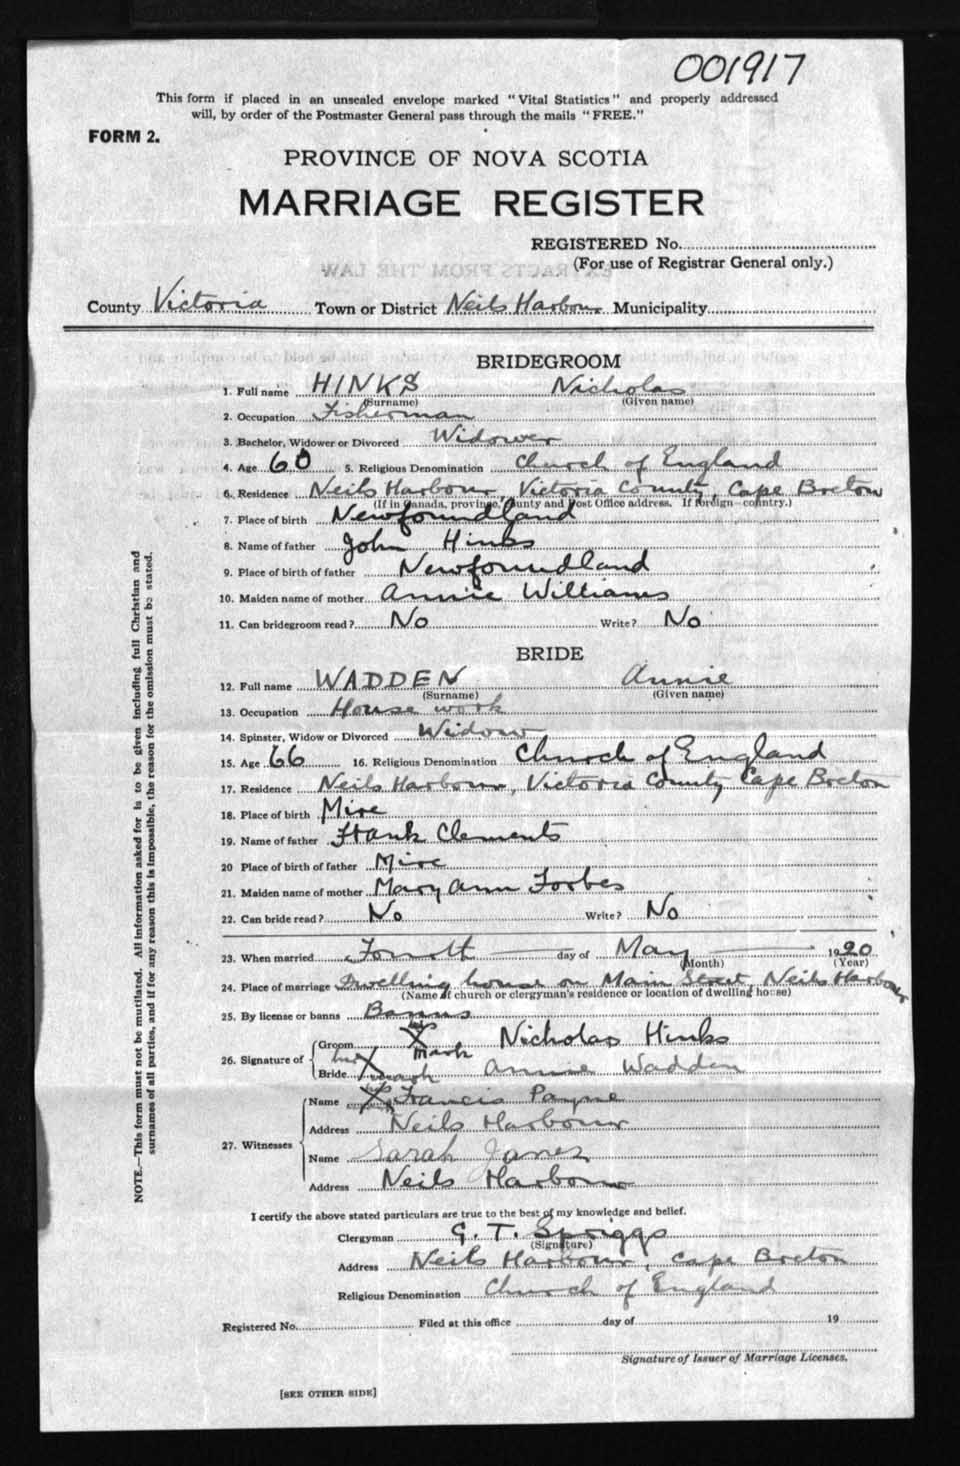 001917
This form if placed in an unsealed envelope marked "Vital Statistics" and properly addressed
will, by order of the Postmaster General pass through the mails "FREE."
FORM 2.
PROVINCE OF NOVA SCOTIA
MARRIAGE REGISTER
REGISTERED No.
(For use of Registrar General only.)
County Victoria Town or District Neils Harbour Municipality
BRIDEGROOM
1. Full name HINKS Nicholas
(Surname) (Given name)
2. Occupation Fisherman
3. Bachelor, Widower or Divorced Widower
4. Age 60 5. Religious Denomination Church of England
6. Residence Neils Harbour, Victoria County, Cape Breton
(If in Canada, province, county and Post Office address. If foreign—country.)
7. Place of birth Newfoundland
8. Name of father John Hinks
9. Place of birth of father Newfoundland
10. Maiden name of mother Annie Williams
11. Can bridegroom read? No Write? No
BRIDE
12. Full name WADDEN Annie
(Surname) (Given name)
13. Occupation House work
14. Spinster, Widow or Divorced Widow
15. Age 66 16. Religious Denomination Church of England
17. Residence Neils Harbour, Victoria County Cape Breton
18. Place of birth Mire
19. Name of father Frank Clements
20 Place of birth of father Mire
21. Maiden name of mother Mary Ann Forbes
22. Can bride read? No Write? No
23. When married Fourth day of May 1920
(Month) (Year)
24. Place of marriage Dwelling house on Main Street, Neils Harbour
(Name of church or clergyman's residence or location of dwelling house)
25. By license or banns Banns
26. Signature of
Groom his X mark Nicholas Hinks
Bride her X mark Annie Wadden
27. Witnesses
Name X Francis Payne
Address Neils Harbour
Name Sarah Janes
Address Neils Harbour
I certify the above stated particulars are true to the best of my knowledge and belief.
Clergyman G. T. Spriggs
(Signature)
Address Neils Harbour, Cape Breton
Religious Denomination Church of England
Registered No. Filed at this office day of 19
Signature of Issuer of Marriage Licenses.
[SEE OTHER SIDE]
NOTE.—This form must not be mutilated. All information asked for is to be given including full Christian and
surnames of all parties, and if for any reason this is impossible, the reason for the omission must be stated.